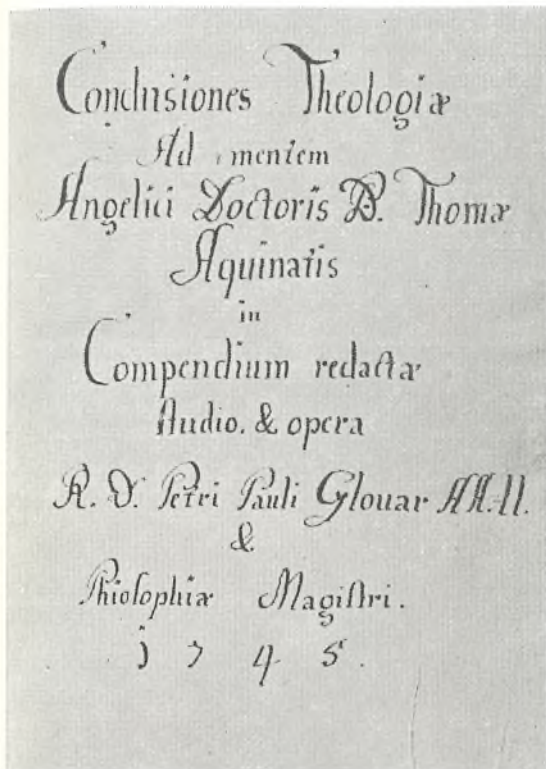 Conclusiones Theologiæ
Ad mentem
Angelici Doctoris B. Thomæ
Aquinatis
in
Compendium redactæ
Studio. & opera
R. D. Petri Pauli Glouar AA. LL.
&
Phiosophiæ Magistri.
1745.